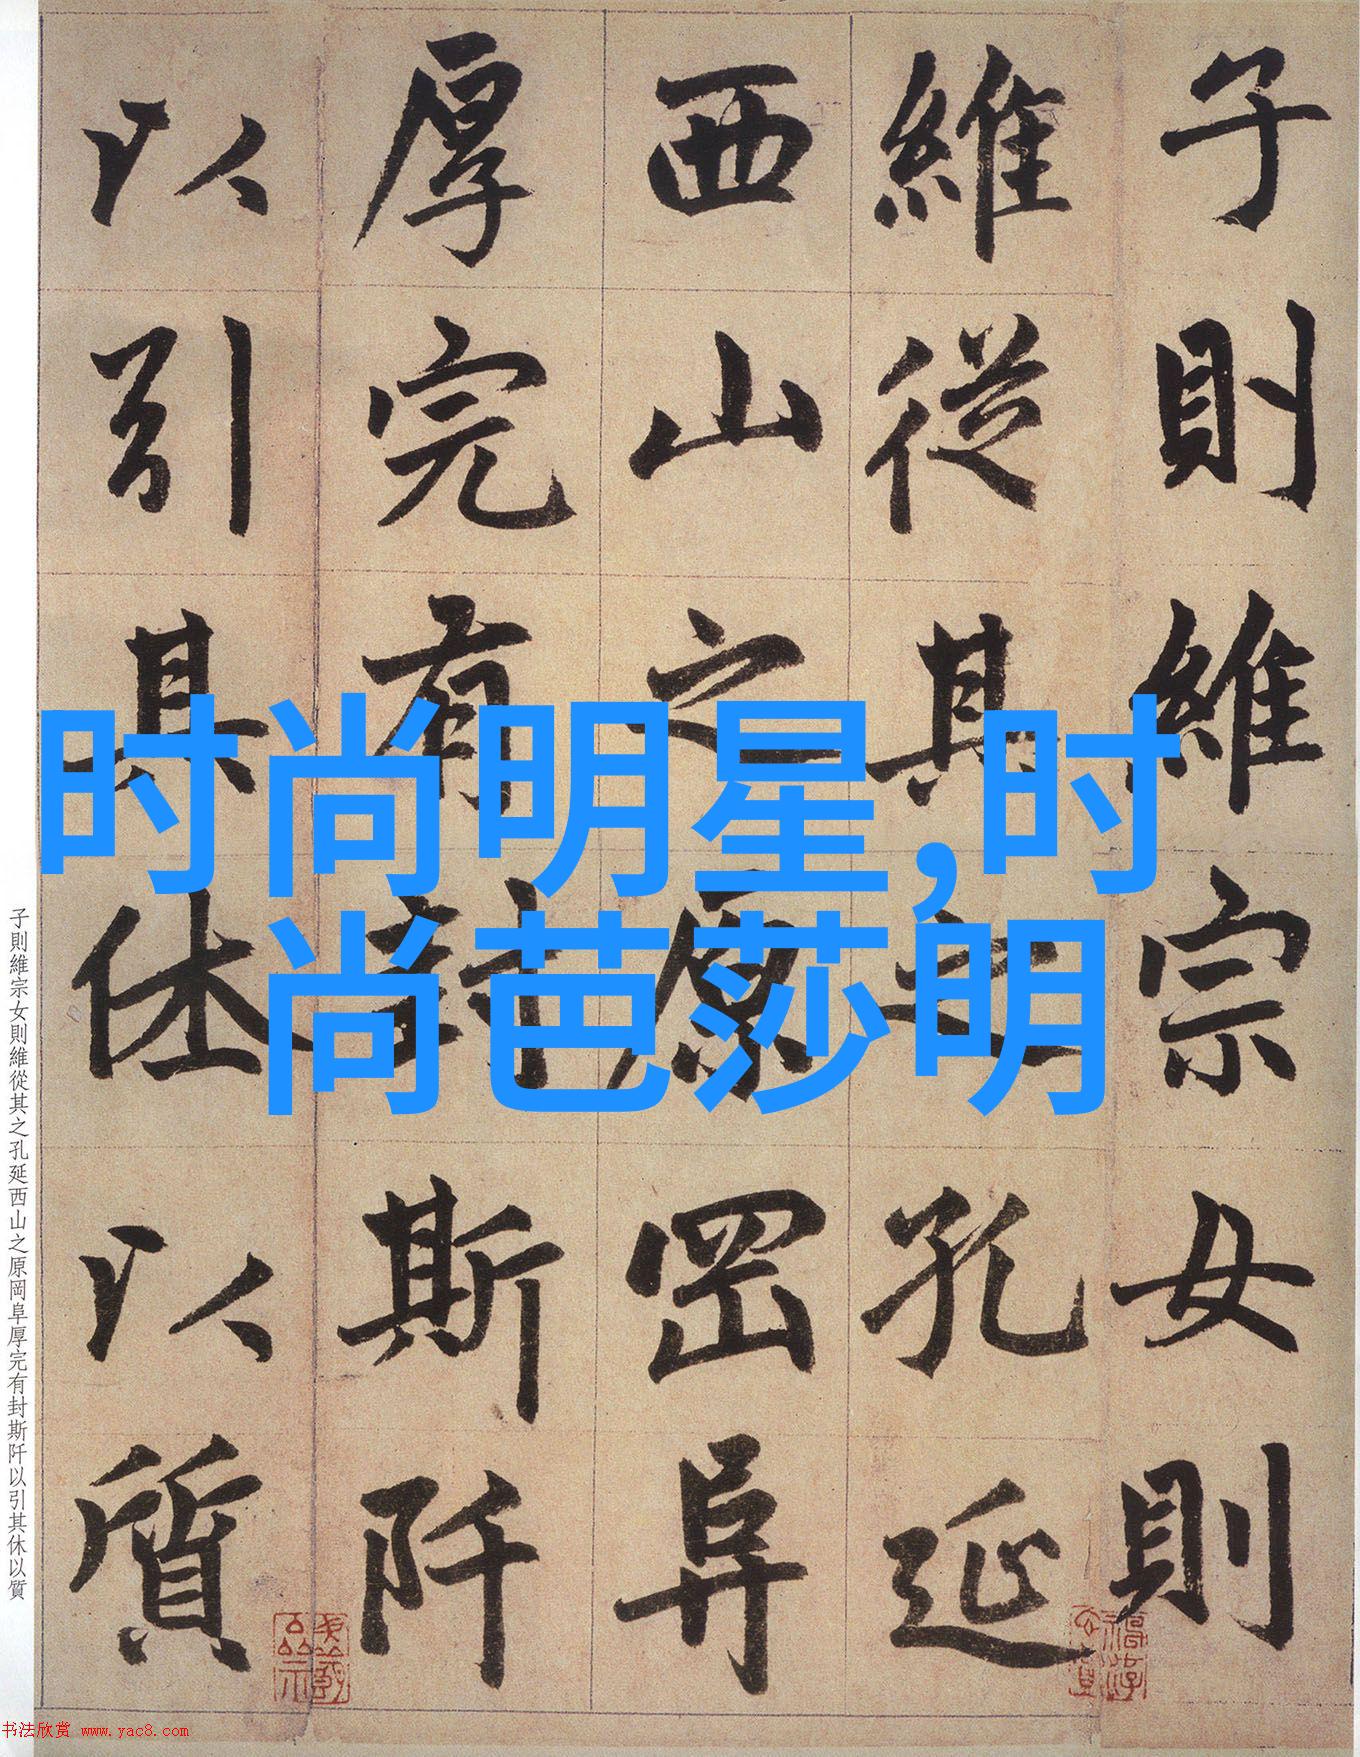 子則維宗女則
維從其之孔延
西山之原罡阜
厚完有封斯阡
以引其休以質
时尚明星,时
尚芭莎明
子則維宗女則維從其之孔延西山之原岡阜厚完有封斯阡以引其休以質
书法欣赏 www.yac8.com